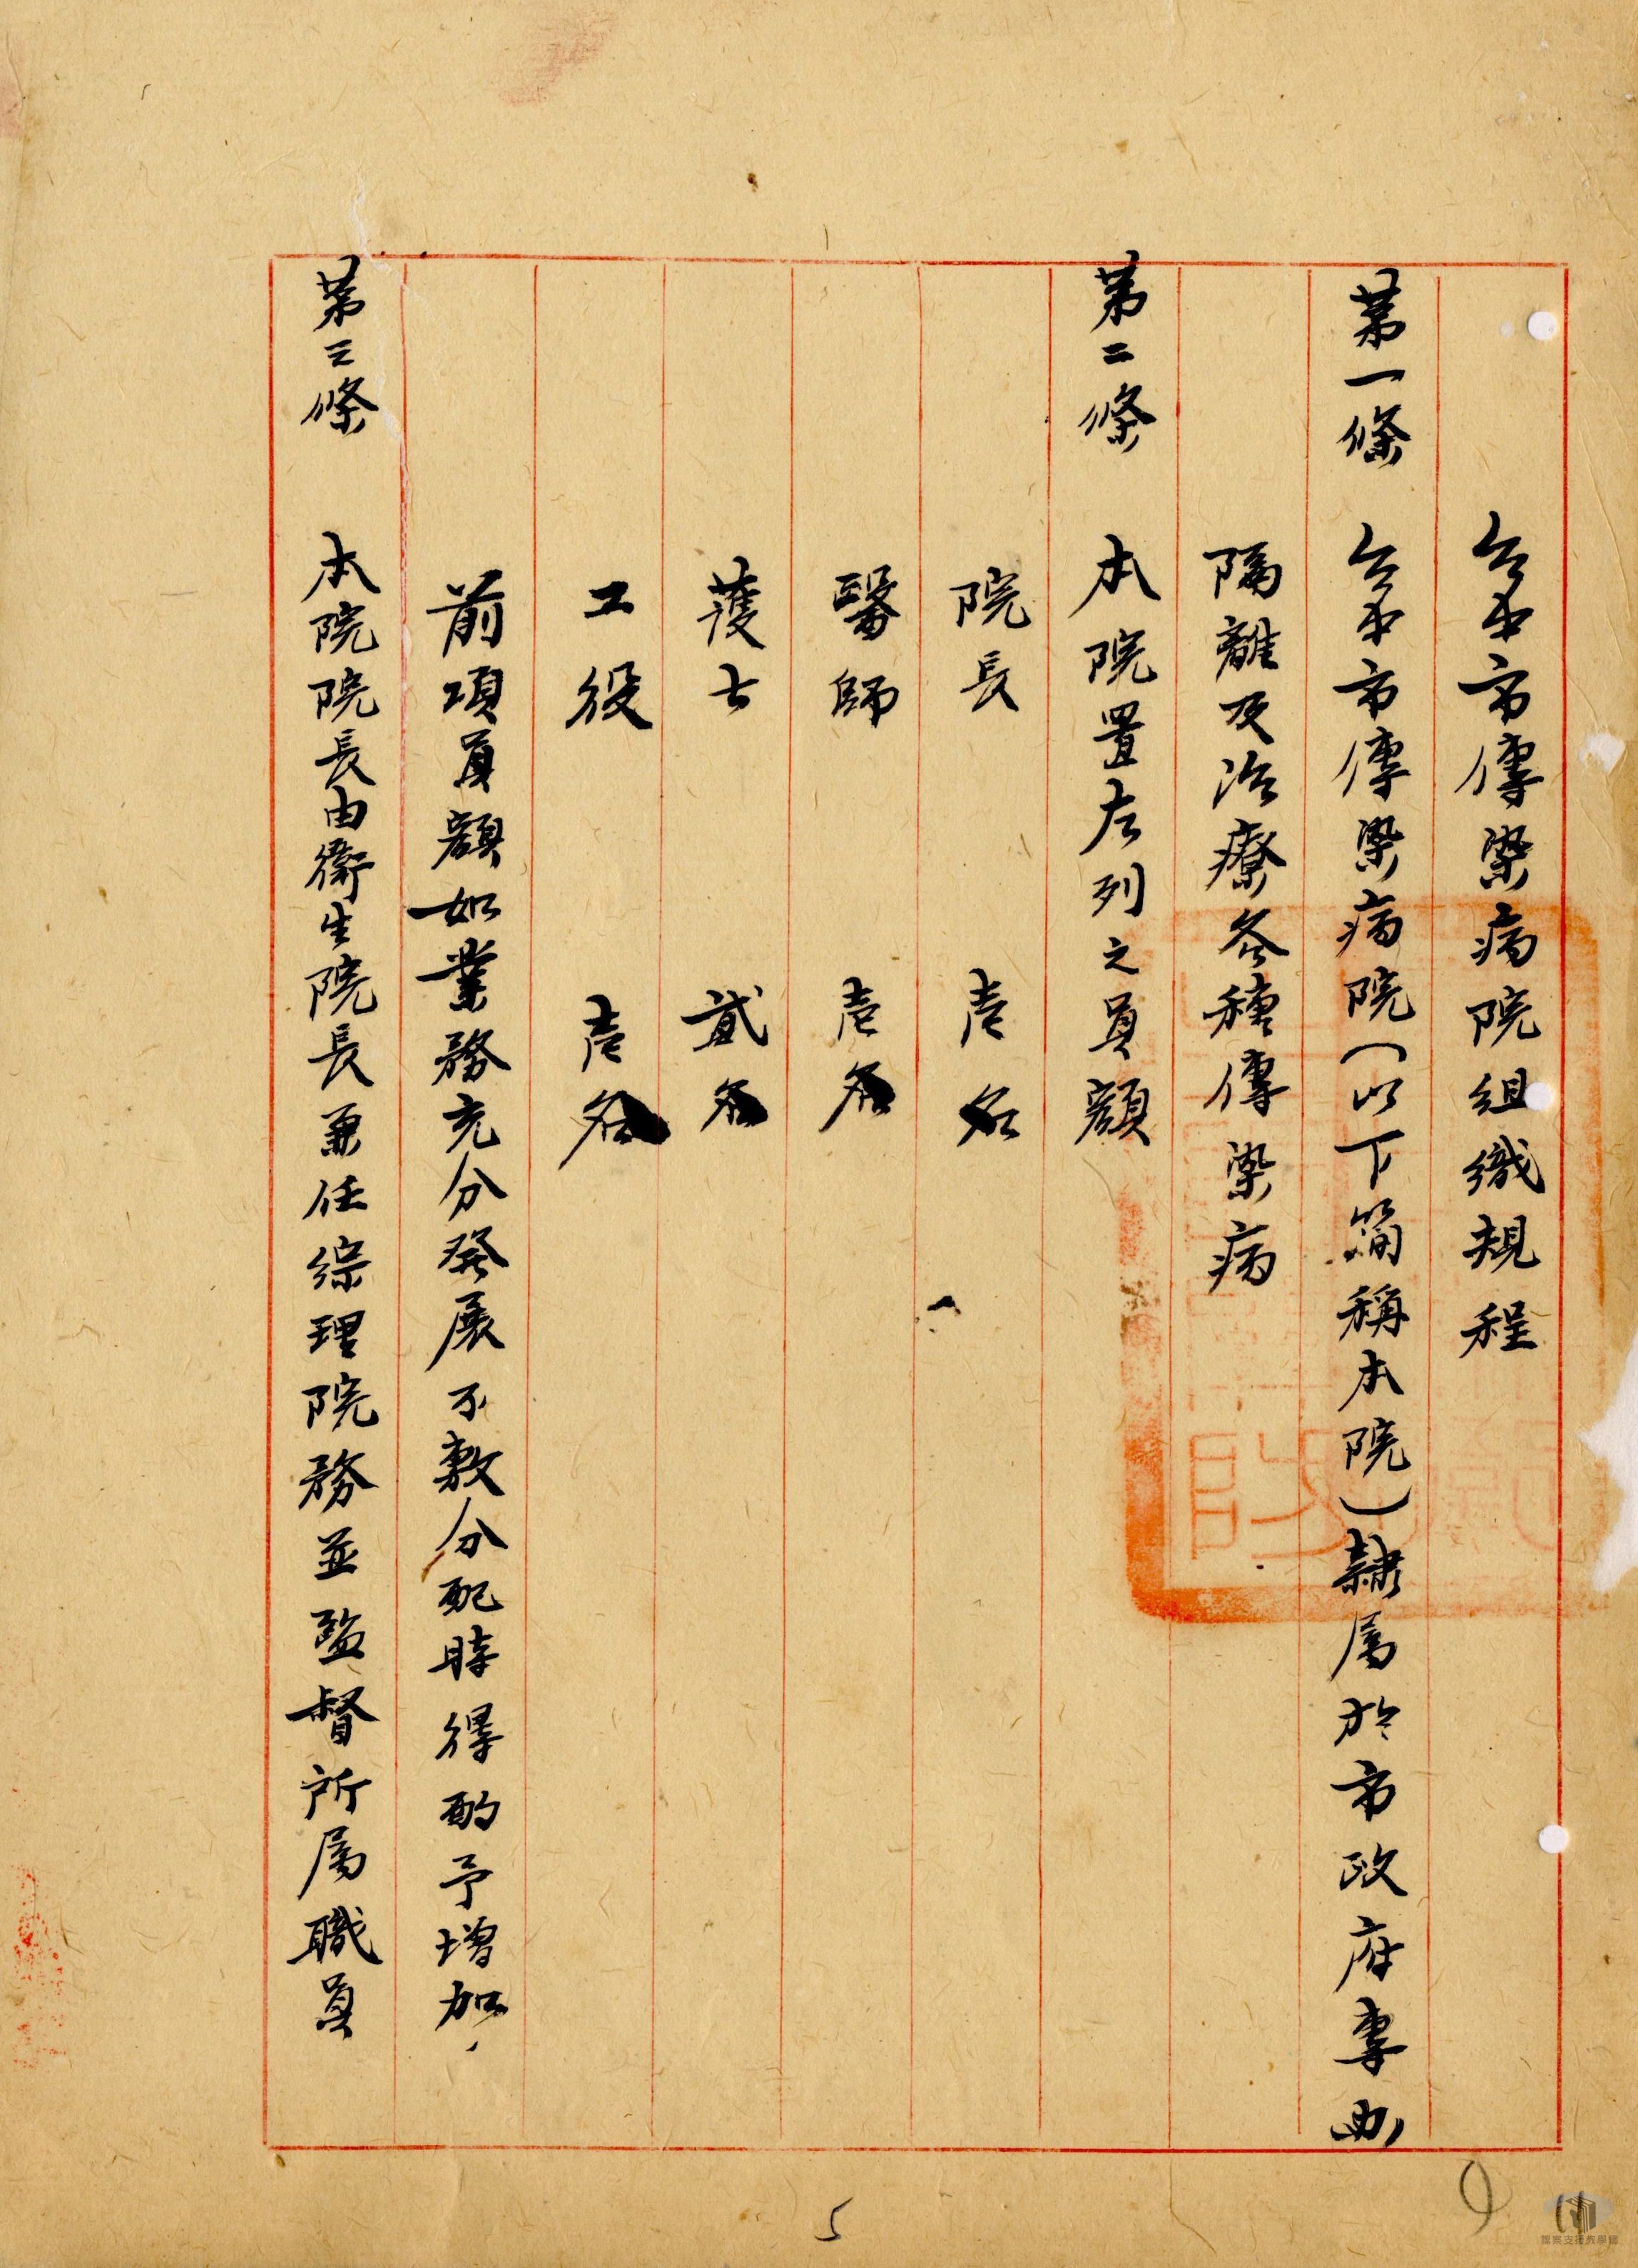 台中市傳染病院組織規程
第一條　台中市傳染病院(以下簡稱本院)隸属於市政府專办
隔離及治療各種傳染病
第二條　本院置左列之員額
院長　壱名
醫師　壱名
護士　貳名
工役　壱名
前項員額如業務充分發展不敷分配時得酌予增加
第三條　本院院長由衛生院長兼任綜理院務並監督所属職員
5
9
檔案支援教學網